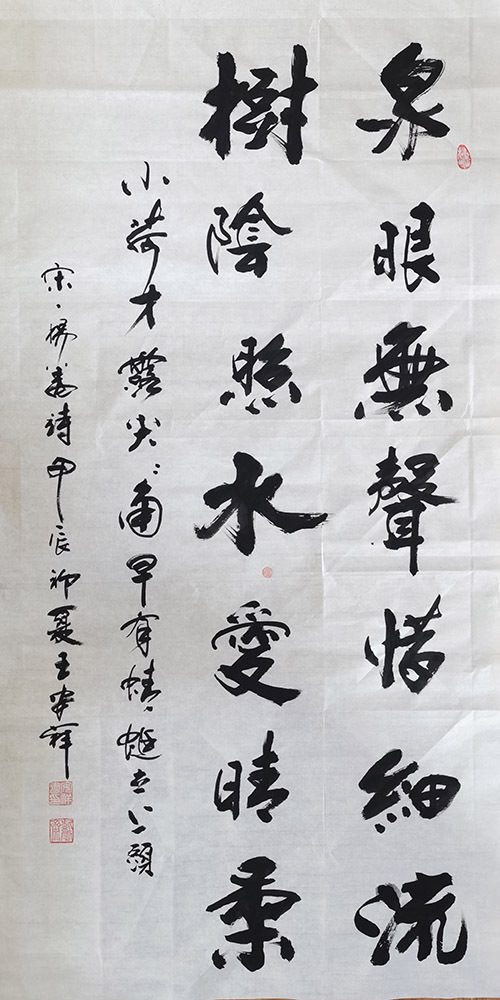 泉眼無聲惜細流
樹陰照水愛晴柔
小荷才露尖〻角早有蜻蜓立上頭
宋、楊萬里詩甲辰初夏王祥